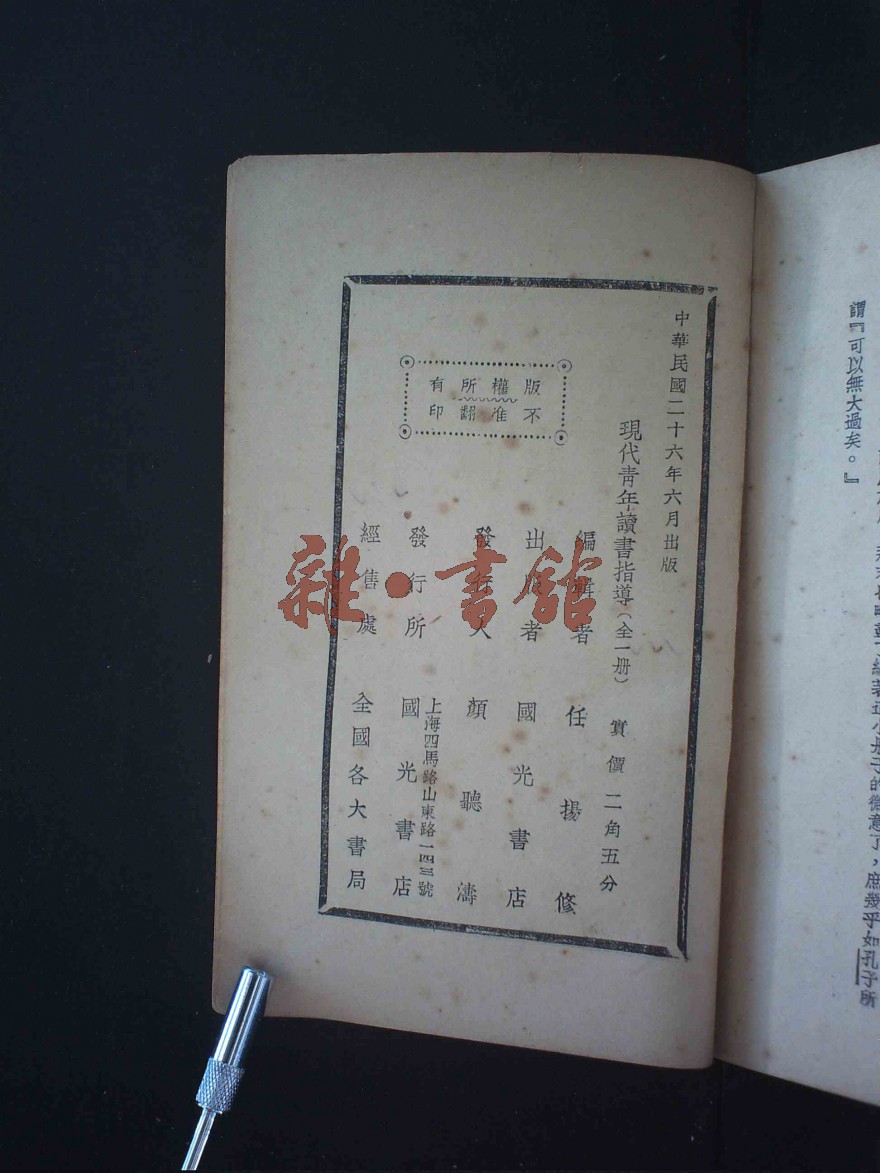 謂『可以無大過矣。』
的微意了，庶幾乎如孔子所
中華民國二十六年六月出版
現代青年讀書指導（全一册）　實價二角五分
編輯者　任揚修
出版者　國光書店
發行人　顏聽濤
上海四馬路山東路一四三號
發行所　國光書店
經售處　全國各大書局
版權所有
不准翻印
雜·書館